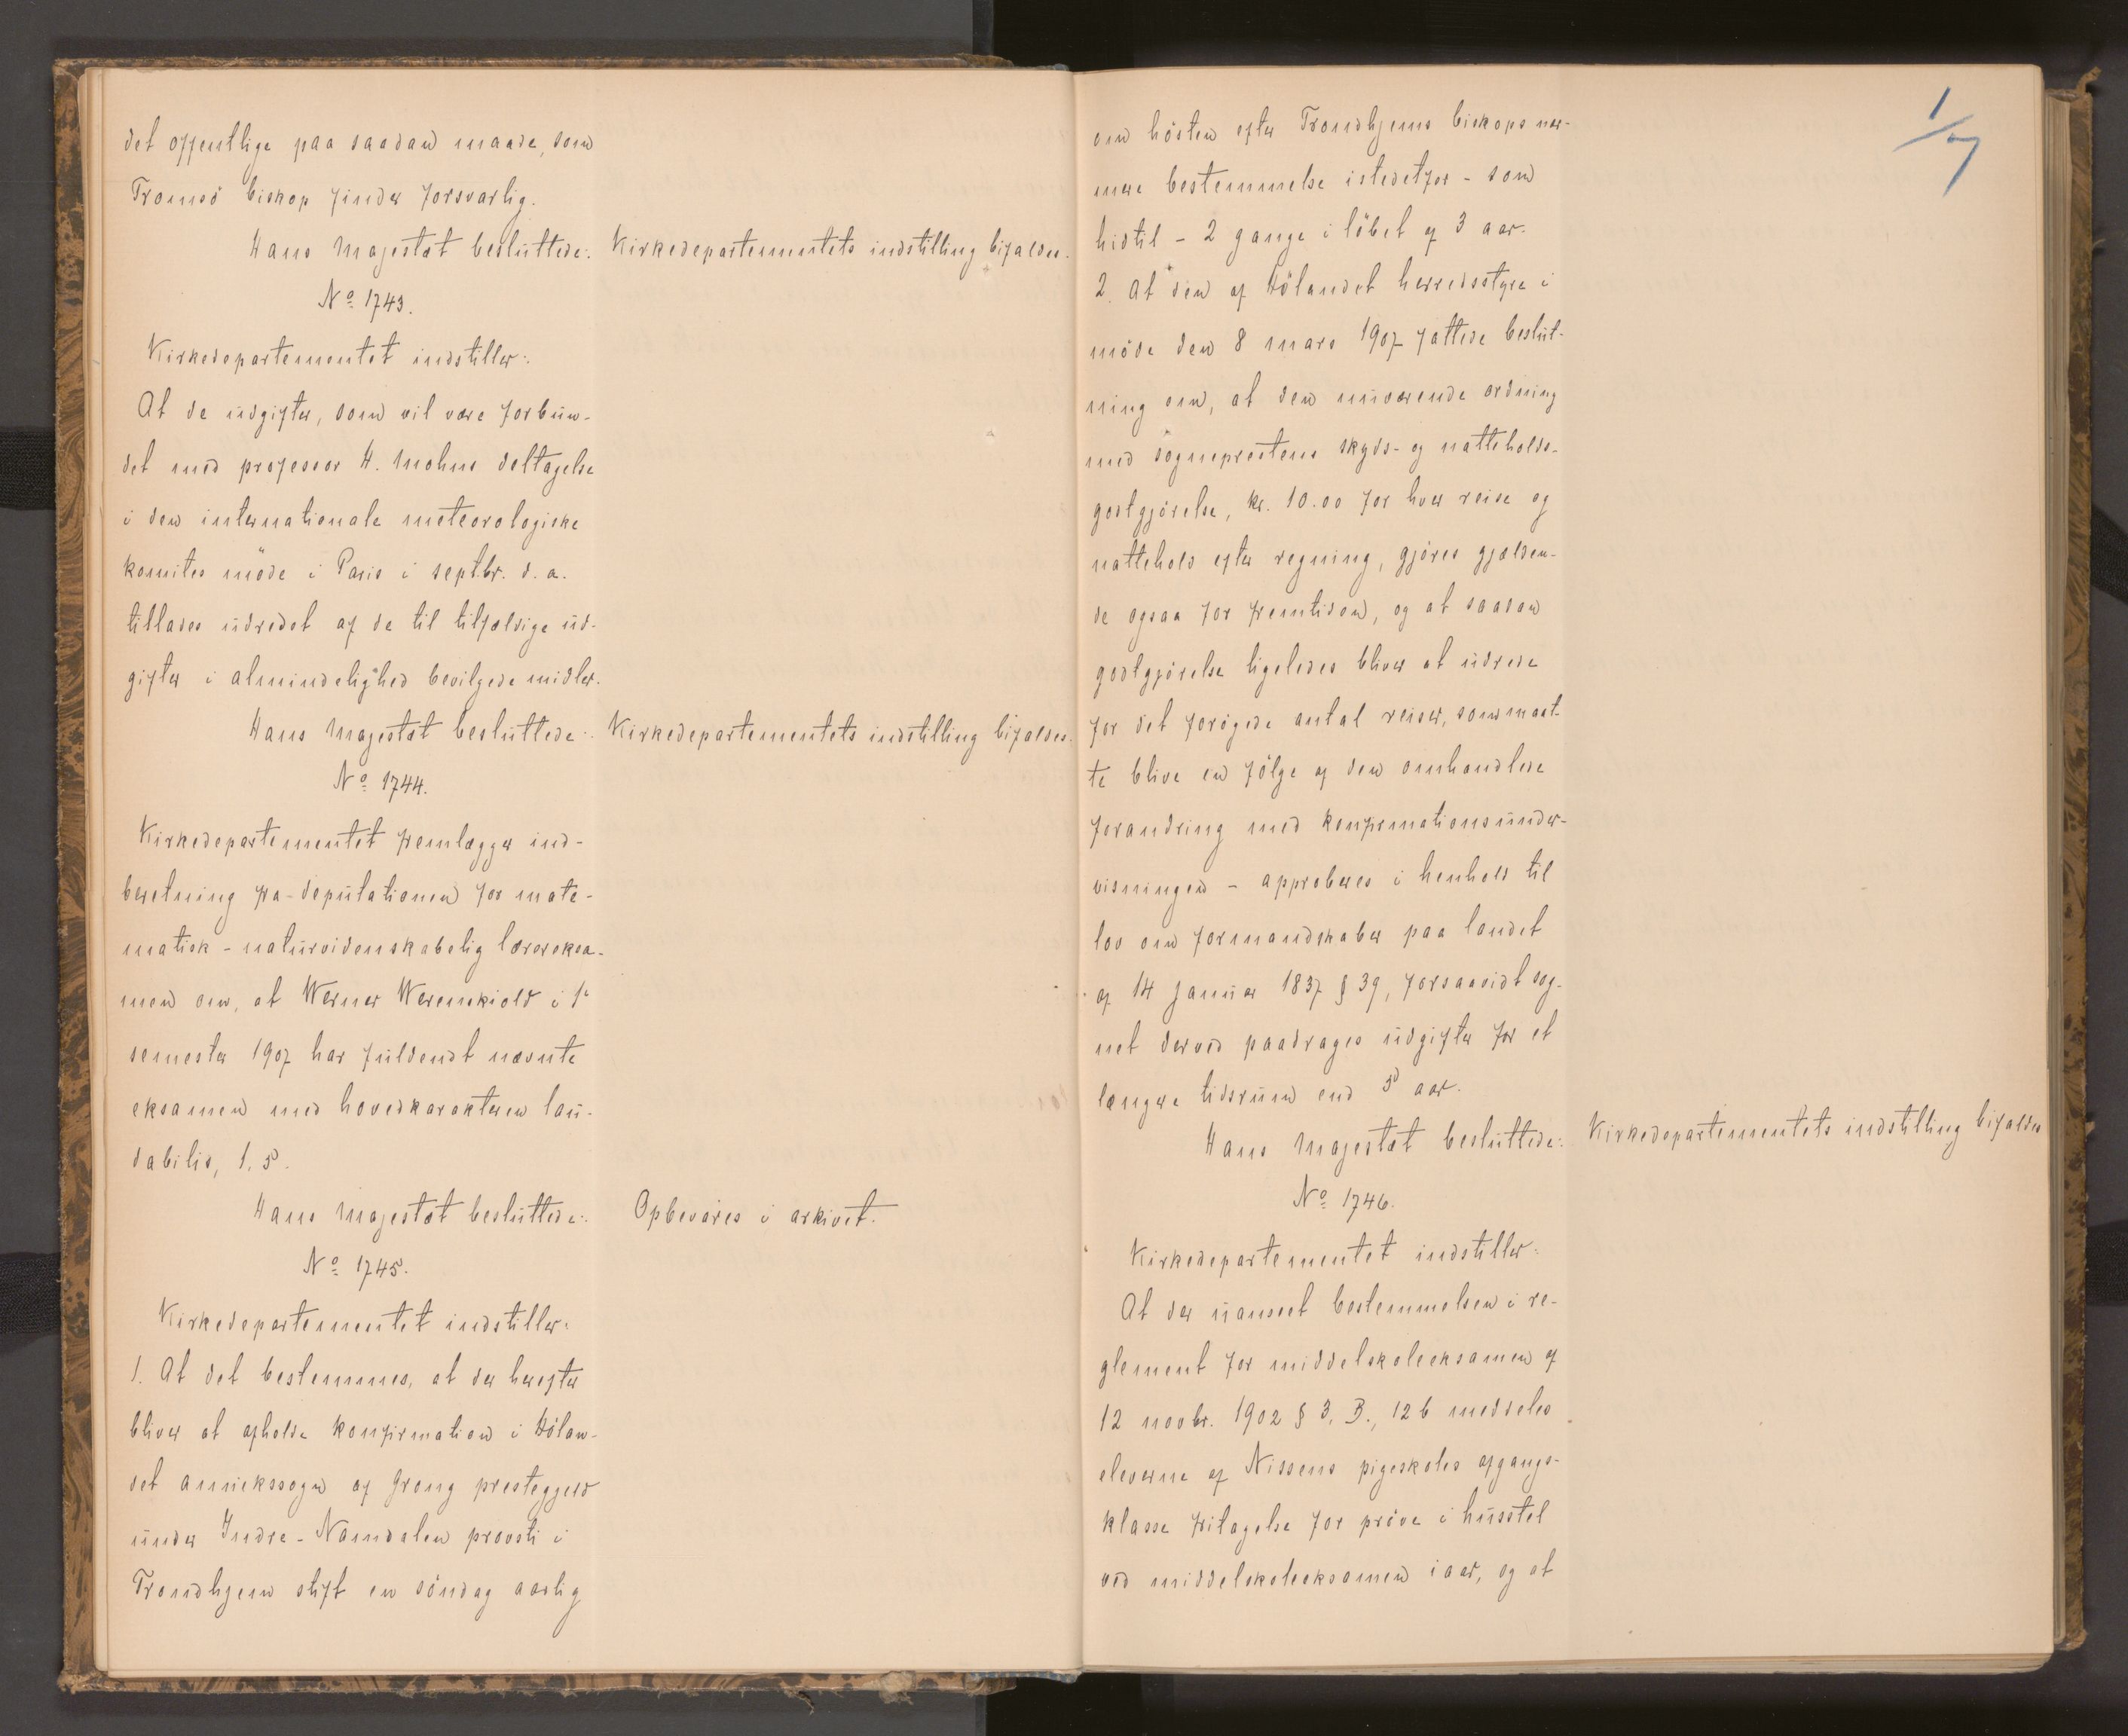 det offentlige paa saadan maade, som
Tromsö biskop finder forsvarlig.
Hans Majestæt besluttede: Kirkedepartementets indstilling bifaldes.
No 1743.
Kirkedepartementet indstiller:
At de udgifter, som vil være forbun-
det med professor H. Mohns deltagelse
i den internationale meteorologiske
komites möde i Paris i septbr. d. a.
tillades udredet af de til tilfældige ud-
gifter i almindelighed bevilgede midler.
Hans Majestæt besluttede: Kirkedepartementets indstilling bifaldes.
No 1744.
Kirkedepartementet fremlægger ind-
beretning fra deputationen for mate-
matisk-naturvidenskabelig lærereksa-
men om, at Werner Werenskiold i 1ste
semester 1907 har fuldendt nævnte
eksamen med hovedkarakteren lau-
dabilis, 1.5.
Hans Majestæt besluttede: Opbevares i arkivet.
No 1745.
Kirkedepartementet indstiller:
1. At det bestemmes, at der herefter
bliver at afholde konfirmation i Hölan-
det annekssogn af Grong prestegjeld
under Indre-Namdalen provsti i
Trondhjem stift en söndag aarlig
1/7
om hösten efter Trondhjems biskops nær-
mere bestemmelse istedetfor - som
hidtil - 2 gange i löbet af 3 aar.
2. At den af Hölandet herredsstyre i
möde den 8 mars 1907 fattede beslut-
ning om, at den nuværende ordning
med sogneprestens skyds- og natteholds-
godtgjörelse, kr. 10.00 for hver reise og
nattehold efter regning, gjöres gjælden-
de ogsaa for fremtiden, og at saadan
godtgjörelse ligeledes bliver at udrede
for det forögede antal reiser, som maat-
te blive en fölge af den omhandlede
forandring med konfirmationsunder-
visningen - approberes i henhold til
lov om formandskaber paa landet
af 14 januar 1837 § 39, forsaavidt sog-
net derved paadrages udgifter for et
længere tidsrum end 5 aar.
Hans Majestæt besluttede: Kirkedepartementets indstilling bifaldes
No 1746.
Kirkedepartementet indstiller:
At der uanseet bestemmelsen i re-
glement for middelskoleeksamen af
12 novbr. 1902 § 3, B., 12 b meddeles
eleverne af Nissens pigeskoles afgangs-
klasse fritagelse for pröve i husstel
ved middelskoleeksamen iaar, og at